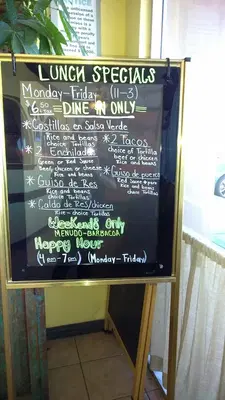 LUNCH SPECIALS
Monday-Friday (11-3)
$6.50 =DINE IN ONLY=
*Costillas en Salsa Verde
Rice and beans
choice Tortillas
*2 Enchiladas
Green or Red Sauce
Beef, chicken or cheese
Rice and beans
*Guiso de Res
Rice and beans
choice Tortillas
*Caldo de Res/chicken
Rice - choice Tortillas
*2 Tacos
choice of Tortilla
beef or chicken
Rice and beans
*Guiso de puerco
Red Sauce
Rice and beans
choice Tortillas
Weekends Only
MENUDO-BARBACOA
Happy Hour
(4pm-7pm) (Monday-Friday)